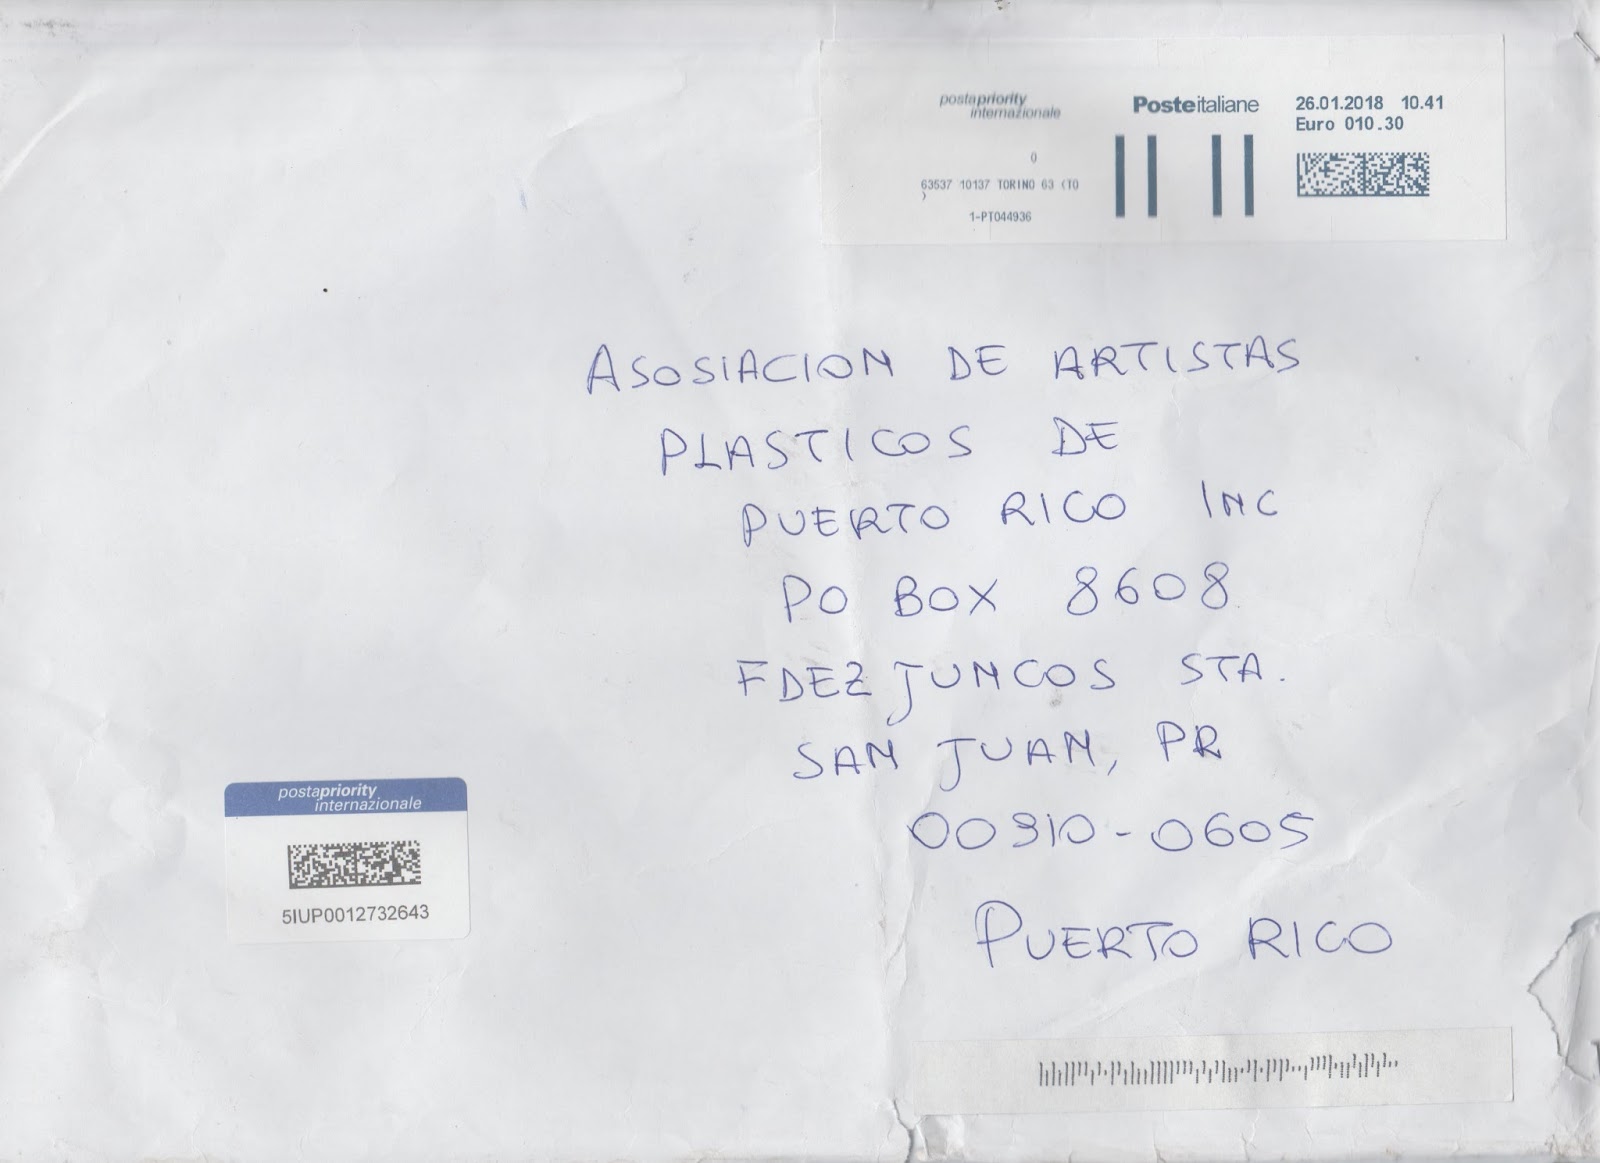 postapriority
internazionale
Posteitaliane
26.01.2018 10.41
Euro 010.30
0
63537 10137 TORINO 63 (TO
)
1-PT044936
ASOSIACION DE ARTISTAS
PLASTICOS DE
PUERTO RICO INC
PO BOX 8608
FDEZ JUNCOS STA.
SAN JUAN, PR
00910-0605
PUERTO RICO
postapriority
internazionale
5IUP0012732643